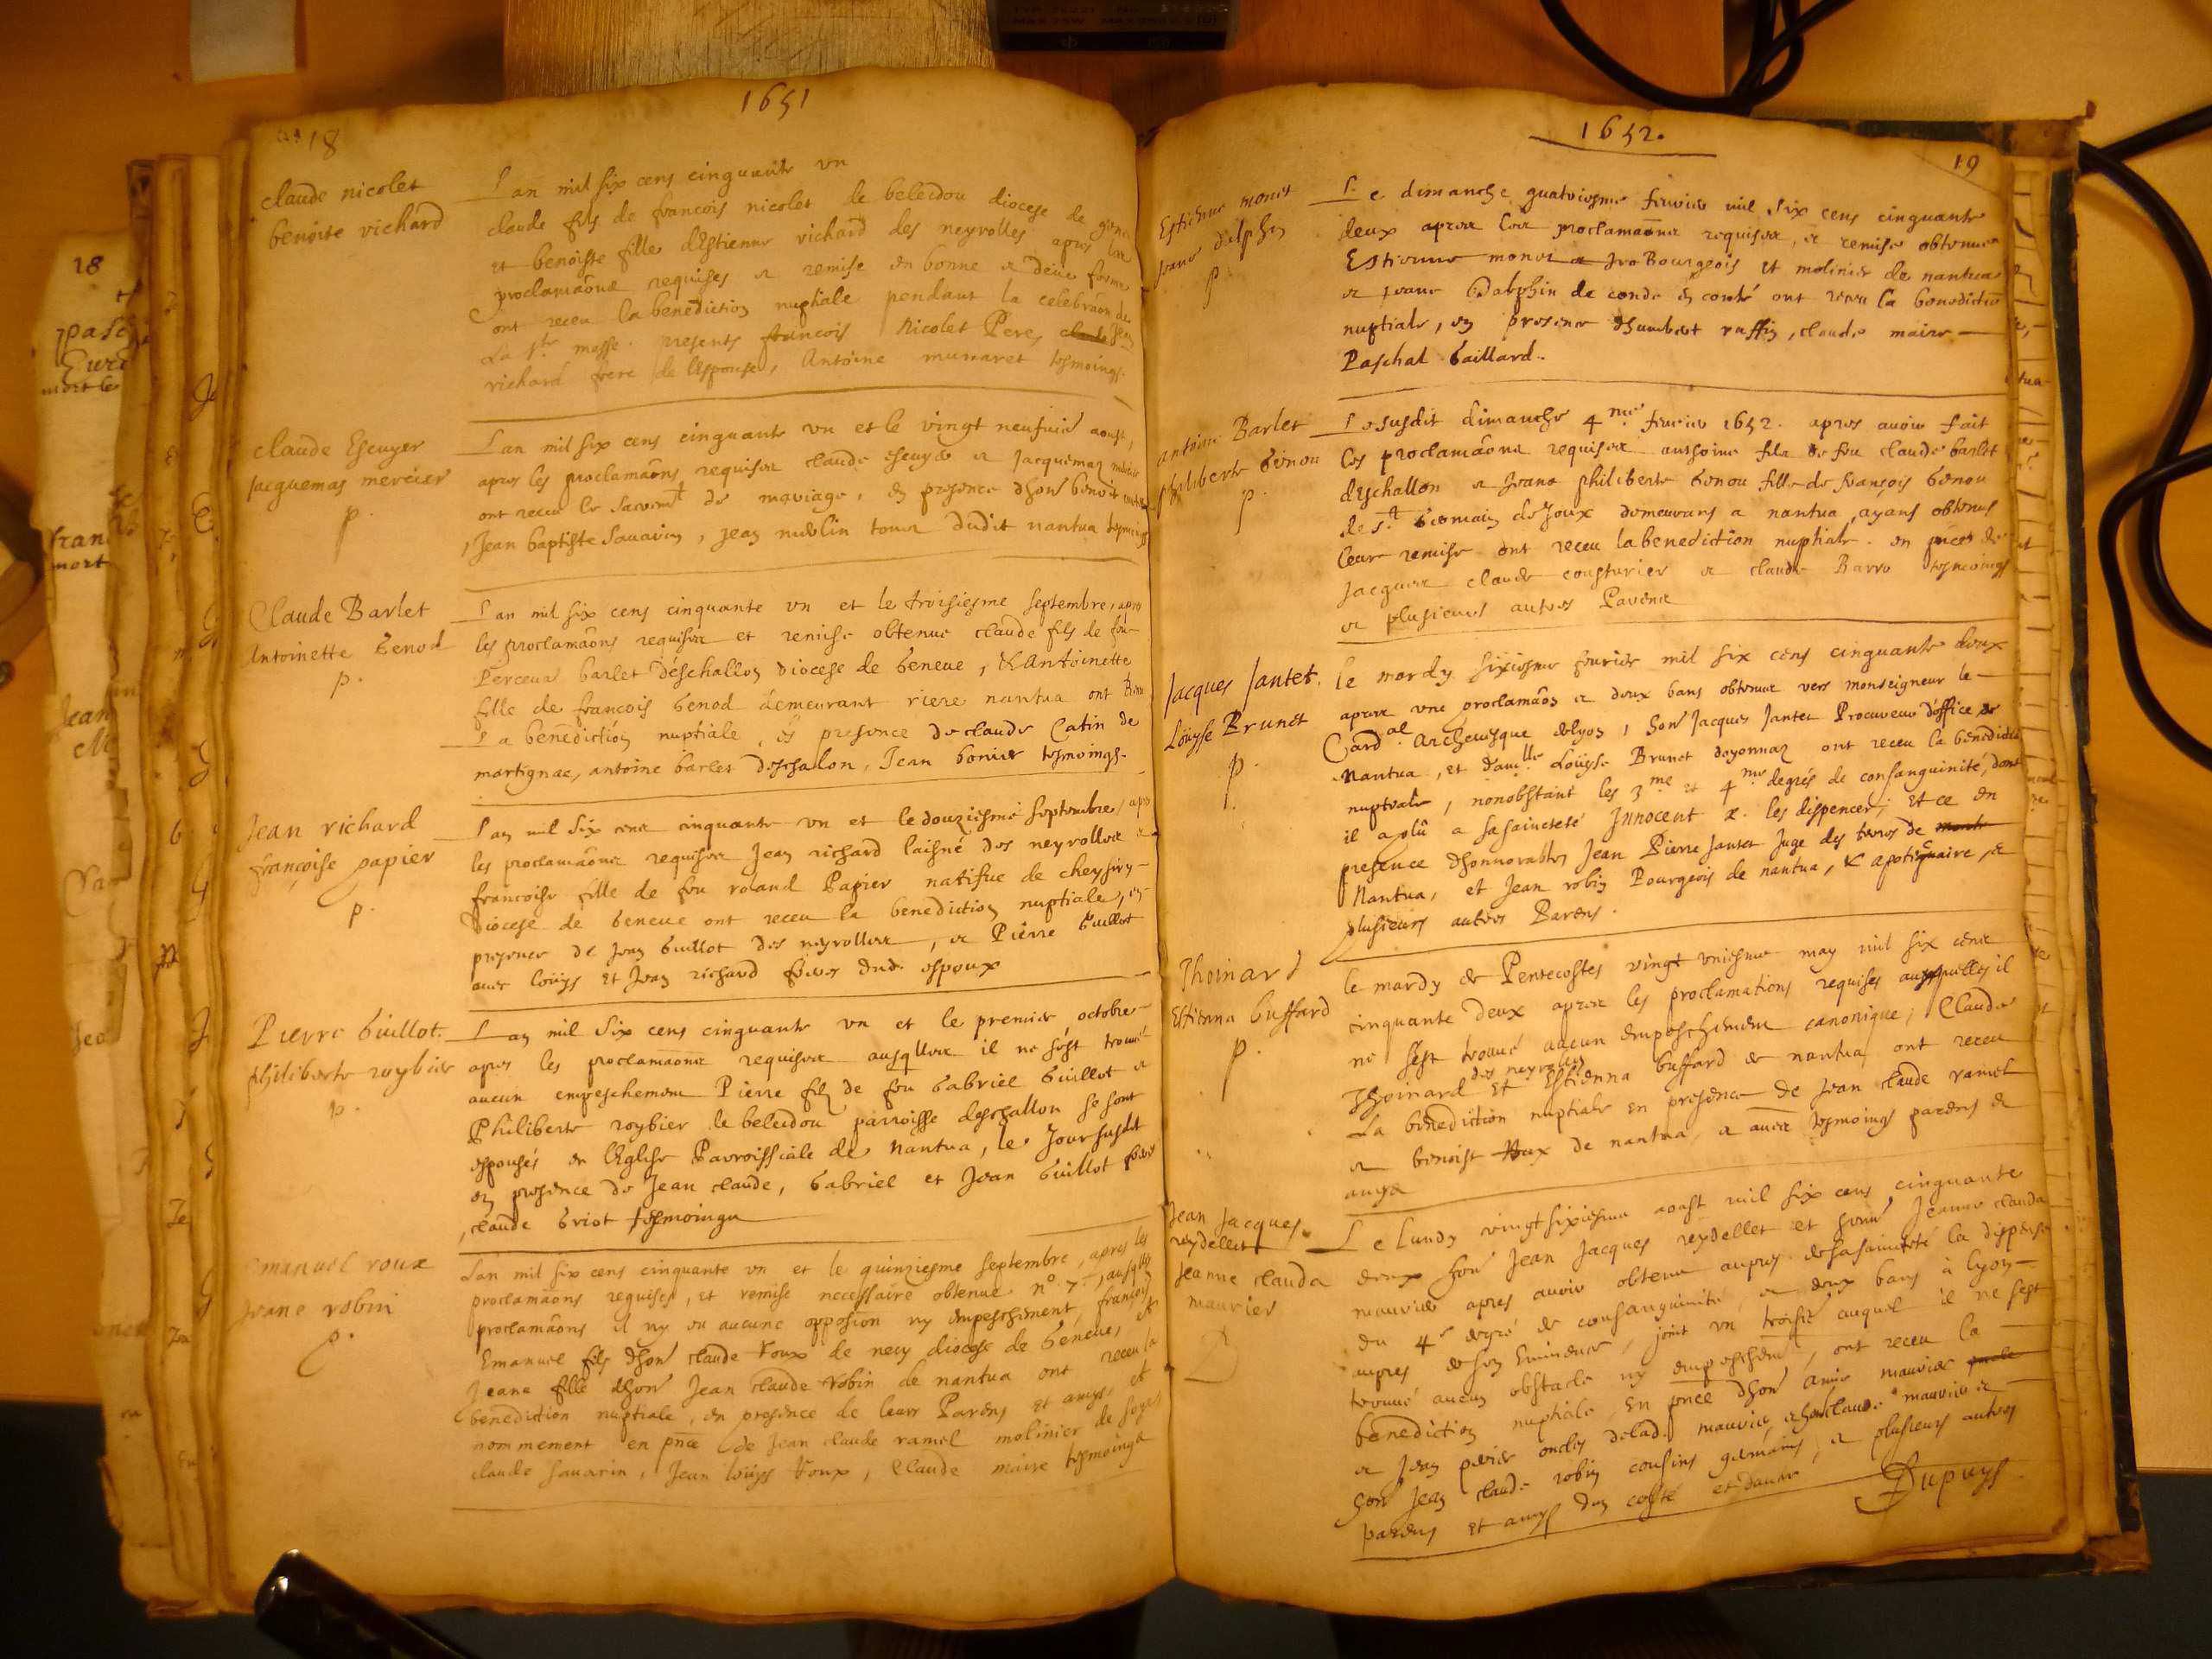 1651
18
claude nicolet
benoite richard
L an mil six cens cinquante un
claude fils de francois nicolet de beleidou diocese de
et benoiste fille d'Estienne richard des neyrolles apres les
proclamaõns requises et remise en bonne et deüe forme
ont receu la benediction nuptiale pendant la celebraõn de
La ste messe. presents francois Nicolet Pere, claude Jean
richard frere de l'Espouse, Antoine munaret tesmoings.
claude Escuyer
Jacquemaz mercier
p.
L an mil six cens cinquante un et le vingt neufuie aoust,
apres les proclamaõns requises claude escuyer et Jacquemaz
ont receu le sacremt de mariage, en presence dhon benoit
, Jean baptiste Sauarin, Jean toux dudit nantua tesmoings
Claude Barlet
Antoinette Genod
p.
L an mil six cens cinquante un et le troisiesme septembre, apres
les proclamaõns requises et remise obtenue claude fils de feu
Perceual barlet d'eschallon diocese de Geneue, & Antoinette
fille de francois Genod demeurant riere nantua ont
La benediction nuptiale, en presence de claude Catin de
martignac, antoine barlet deschalon, Jean tesmoings.
Jean richard
françoise papier
p.
L an mil six cens cinquante un et le douziesme septembre, apres
les proclamaõns requises Jean richard laisné des neyrolles et
francoise fille de feu roland Papier natifue de
Diocese de Geneue ont receu la benediction nuptiale, en
presence de Jean Guillot des neyrolles, et Pierre Guillot
auec loüys et Jean richard freres dud. espoux
Pierre Guillot.
philiberte roybier
p.
L an mil six cens cinquante un et le premier octobre
apres les proclamaõns requises ausqlles il ne s'est trouué
aucun empeschement Pierre fils de feu Gabriel Guillot et
Philiberte roybier de beleidou parroisse deschallon se sont
espousés en l'Eglise Parroissiale de Nantua, le Jour susdit
en presence de Jean claude, Gabriel et Jean Guillot freres
, claude Griot tesmoings
Emanuel roux
Jeane robin
p.
Lan mil six cens cinquante un et le quinziesme septembre, apres les
proclamaõns requises, et remise necessaire obtenue nº 7
proclamaõns il ny eu aucune opposion ny empeschement, françois
Emanuel fils dhon claude Roux de diocese de Geneue, et
Jeane fille dhon Jean claude Robin de nantua ont receu la
benediction nuptiale, en presence de leurs Parens et amys. et
nommement en pñce de Jean claude ramel molinier de
claude sauarin, Jean loüys Roux, Claude maire tesmoings
1652.
19
Estienne monet
Jeane dalphin
p
Le dimanche quatriesme feurier mil six cens cinquante
deux apres les proclamaõns requises, et remise obtenue
Estienne monet et Bourgeois et molinier de nantua
et Jeane Dalphin de conde en comté ont receu la benediction
nuptiale, en presence dhumbert ruffin, claude maire
Paschal Gaillard.
antoine Barlet
philiberte Genou
p.
Le susdit dimanche 4me feurier 1652. apres auoir fait
les proclamaõns requises anthoine fils de feu claude barlet
d'Eschallon et Jeane philiberte Genou fille de françois Genou
de st Germain de Joux demeurans a nantua, ayans obtenus
leur remise ont receu la benediction nuptiale. en pñce de
Jacques claude cousturier et claude Barro tesmoings
et plusieurs autres Parens
Jacques Jantet.
Loüyse Brunet
p.
le mardy sixiesme feurier mil six cens cinquante deux
apres une proclamaõn et deux bans obtenue vers monseigneur le
Cardal Archeuesque de lyon, hon Jacques Jantet Procureur d'office de
Nantua, et damlle Loüyse Brunet doyonnaz ont receu la benediction
nuptiale, nonobstant les 3me et 4me degrés de consanguinité, dont
il a plû a sa saincteté Innocent X. les dispencer; et ce en
presence dhonnorables Jean Pierre Jantet Juge des terres de
Nantua, et Jean robin Bourgeois de nantua, & apotiquaire, et
plusieurs autres Parens.
Thoinard
Estienna buffard
p.
le mardy de Pentecostes vingt uniesme may mil six cens
cinquante deux apres les proclamations requises ausquelles il
ne s'est trouué aucun empeschement canonique, Claude
des neyrolles
Thoinard et Estienna buffard de nantua ont receu
La benediction nuptiale en presence de Jean claude ramel
et benoist Roux de nantua, et autres tesmoings parens et
amys
Jean Jacques
reydellet
Jeanne clauda
maurier
Le lundy vingt sixiesme aoust mil six cens cinquante
deux hon Jean Jacques reydellet et honn Jeanne clauda
maurier apres auoir obtenu aupres de sa saincteté la dispense
du 4e degré de consanguinité, et deux bans à lyon
aupres de son Eminence, joint un troisie auquel il ne s'est
trouué aucun obstacle ny empeschemt, ont receu la
benediction nuptiale, en pñce dhon amie maurier
et Jean perier oncles de lad. maurier, et hon claude maurier et
hon Jean claude robin cousins germains, et plusieurs autres
parens et amys d'un costé et dautre
Dupuys